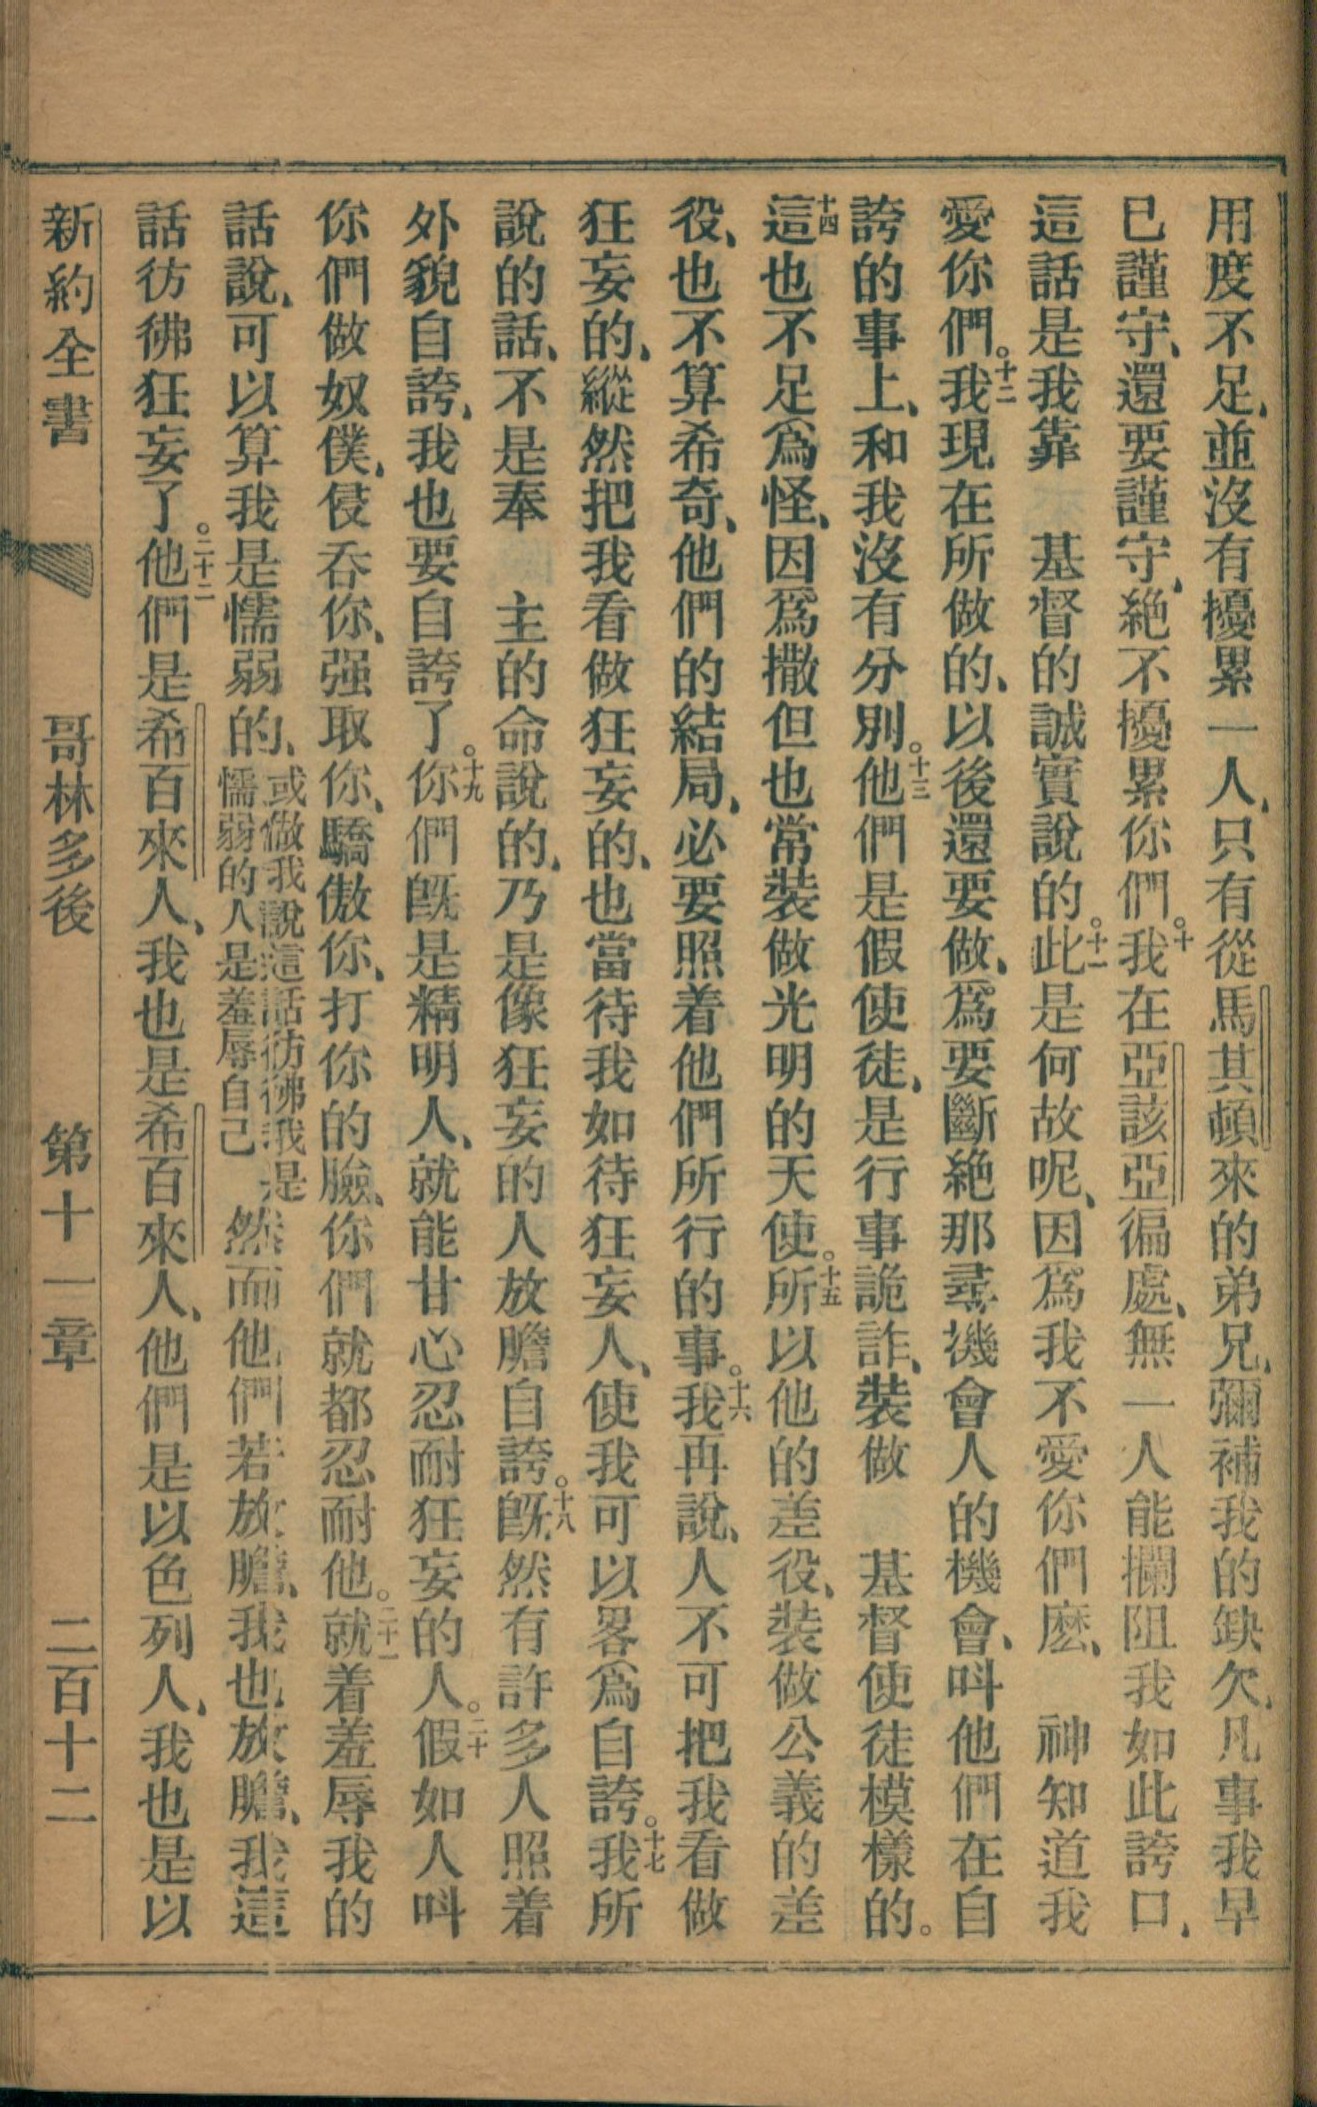 用度不足、並沒有擾累一人、只有從馬其頓來的弟兄、彌補我的缺欠、凡事我早
已謹守、還要謹守、絕不擾累你們。十我在亞該亞徧處、無一人能攔阻我如此誇口、
這話是我靠　基督的誠實說的。十一此是何故呢、因爲我不愛你們麽、　神知道我
愛你們。十二我現在所做的、以後還要做、爲要斷絕那尋機會人的機會、呌他們在自
誇的事上、和我沒有分別。十三他們是假使徒、是行事詭詐、裝做　基督使徒模樣的。
十四這也不足爲怪、因爲撒但也常裝做光明的天使。十五所以他的差役、裝做公義的差
役、也不算希奇、他們的結局、必要照着他們所行的事。十六我再說、人不可把我看做
狂妄的、縱然把我看做狂妄的、也當待我如待狂妄人、使我可以畧爲自誇。十七我所
說的話、不是奉　主的命說的、乃是像狂妄的人放膽自誇。十八旣然有許多人照着
外貌自誇、我也要自誇了。十九你們旣是精明人、就能甘心忍耐狂妄的人。二十假如人呌
你們做奴僕、侵吞你、强取你、驕傲你、打你的臉、你們就都忍耐他。二十一就着羞辱我的
話說、可以算我是懦弱的、或做我說這話彷彿我是懦弱的人是羞辱自己然而他們若放膽、我也放膽、我這
話彷彿狂妄了。二十二他們是希百來人、我也是希百來人、他們是以色列人、我也是以
新約全書　哥林多後　第十一章　二百十二